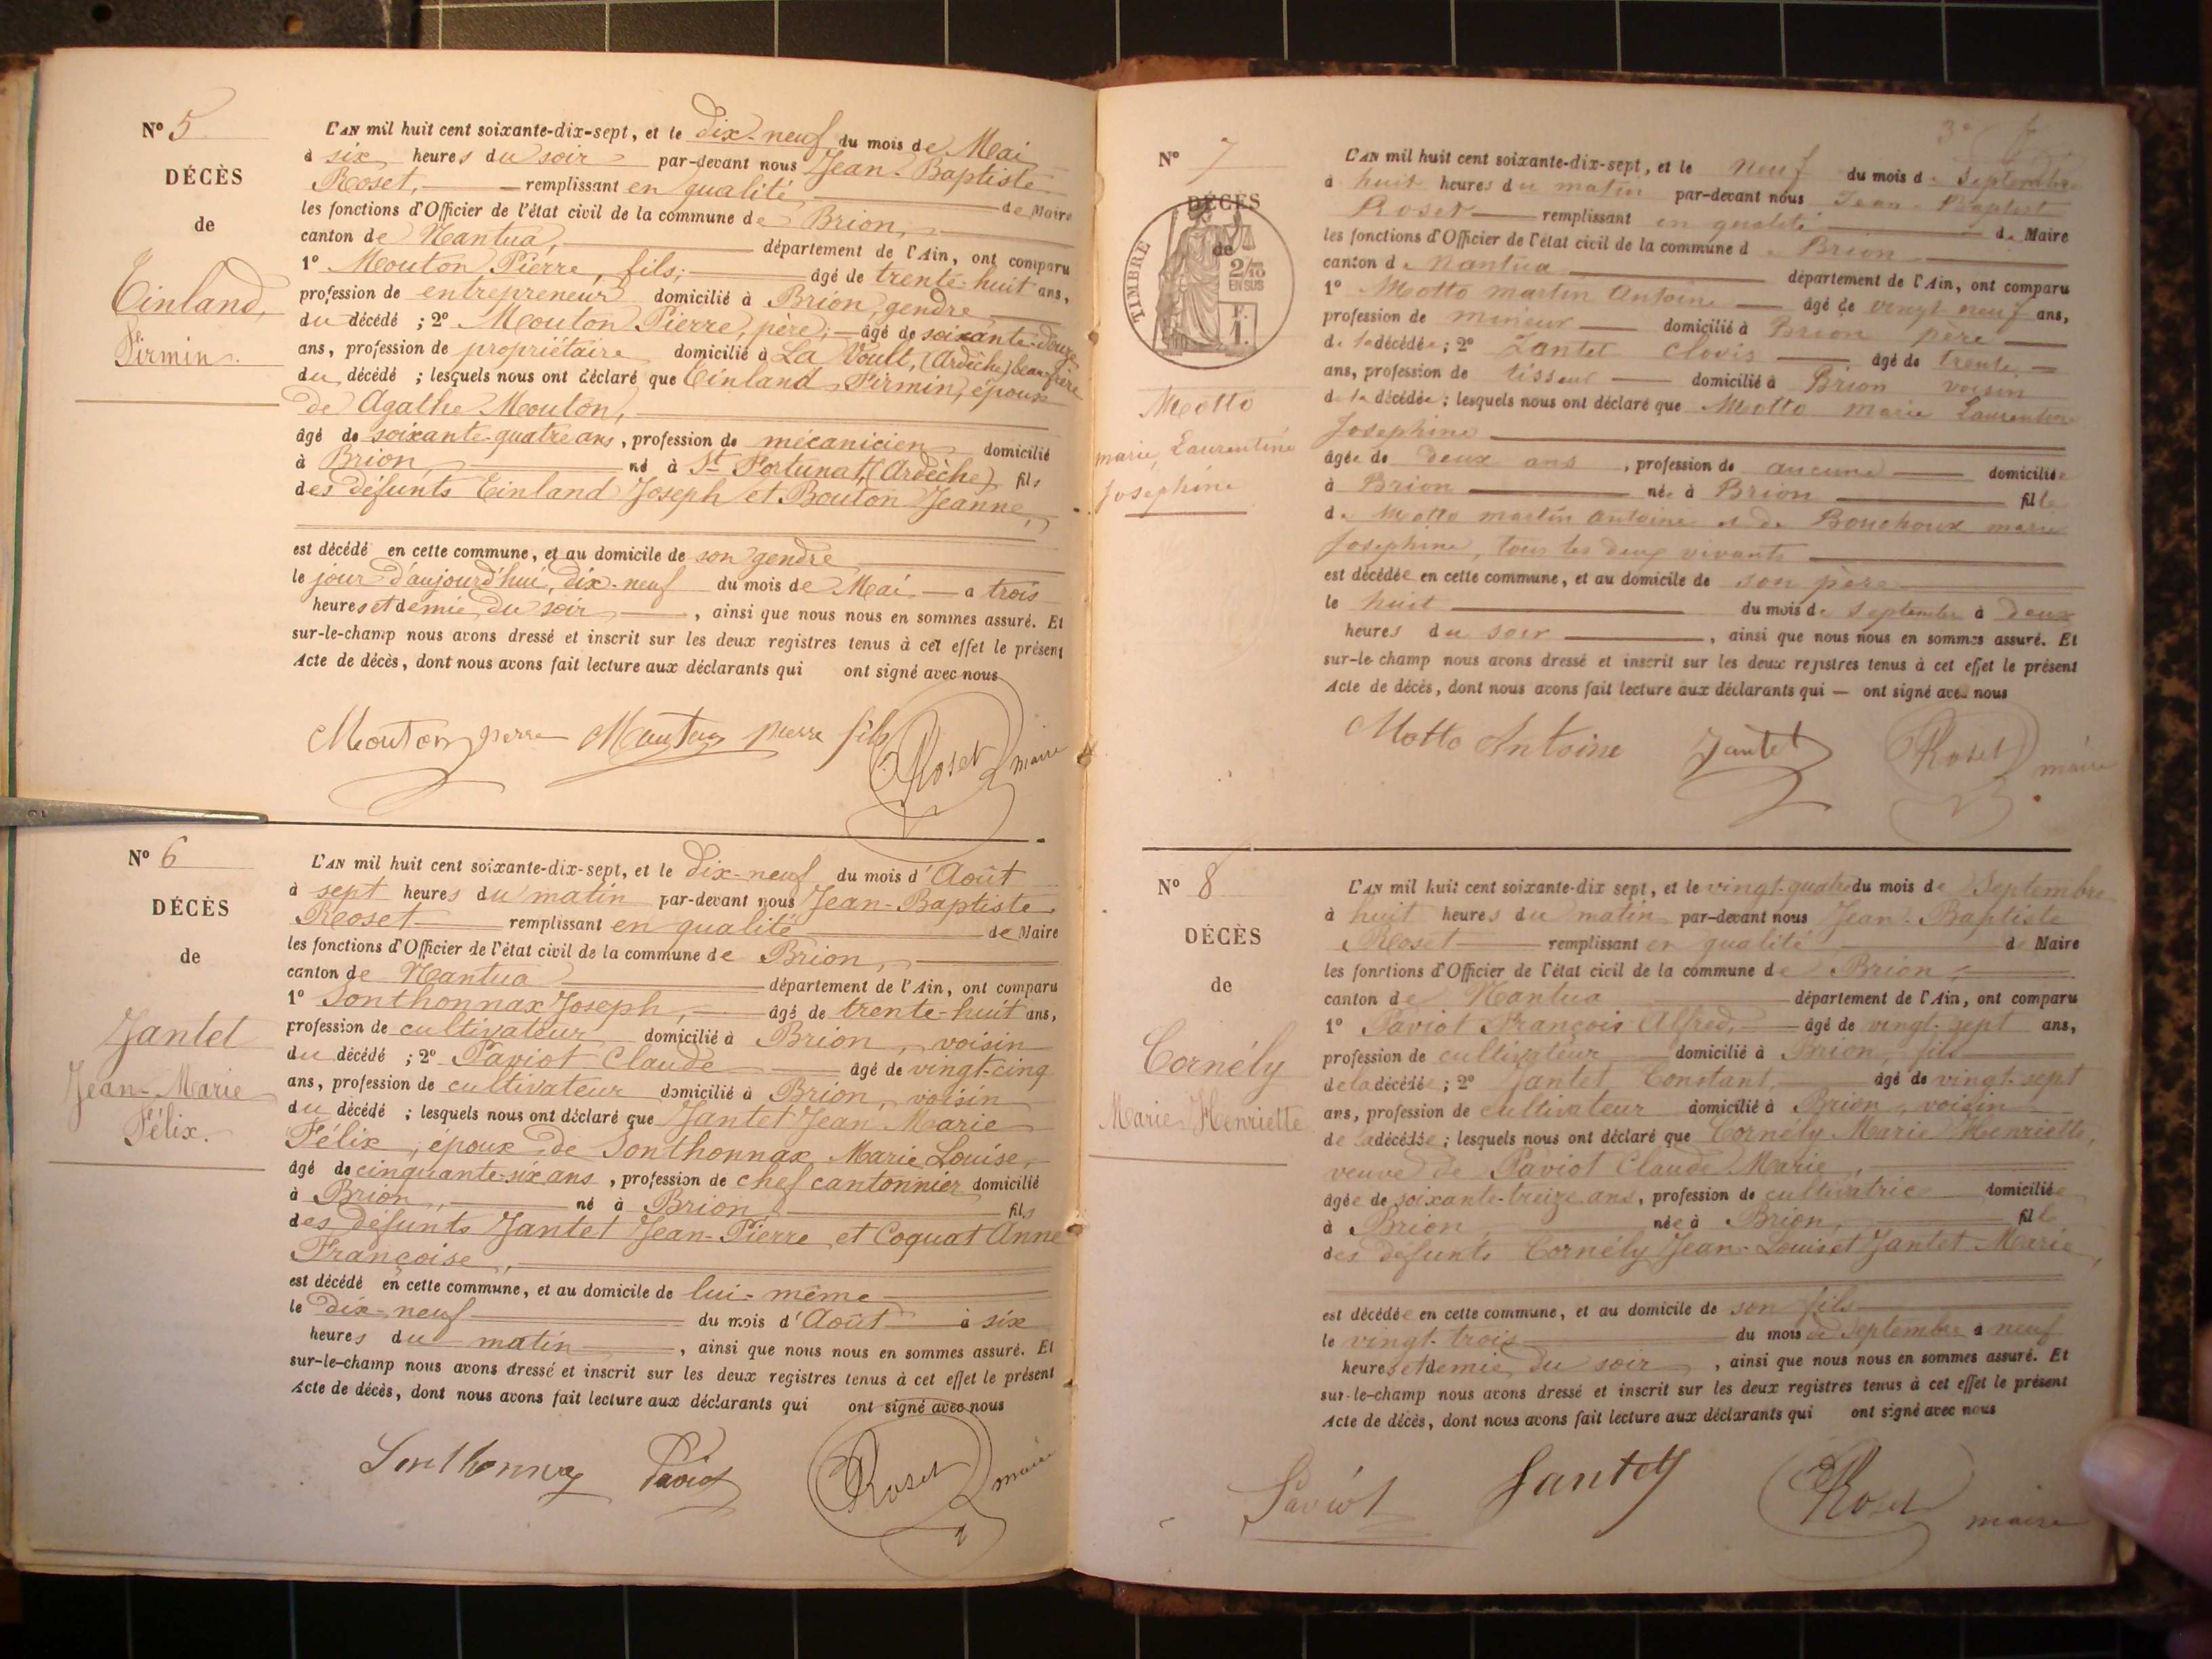 Nº 5
DÉCÈS
de
Tinland,
Firmin.
L'AN mil huit cent soixante-dix-sept, et le dix-neuf du mois de Mai
à six heures du soir par-devant nous Jean-Baptiste
Roset, remplissant en qualité de Maire
les fonctions d'Officier de l'état civil de la commune de Brion,
canton de Nantua, département de l'Ain, ont comparu
1º Mouton Pierre, fils, âgé de trente-huit ans,
profession de entrepreneur domicilié à Brion, gendre
du décédé ; 2º Mouton Pierre, père, âgé de soixante-douze
ans, profession de propriétaire domicilié à La Voult, (Ardèche) beau-frère
du décédé ; lesquels nous ont déclaré que Tinland, Firmin, époux
de Agathe Mouton,
âgé de soixante-quatre ans, profession de mécanicien domicilié
à Brion, né à St Fortunat, (Ardèche) fils
des défunts Tinland Joseph et Bouton Jeanne,
est décédé en cette commune, et au domicile de son gendre
le jour d'aujourd'hui, dix-neuf du mois de Mai à trois
heures et demie du soir, ainsi que nous nous en sommes assuré. Et
sur-le-champ nous avons dressé et inscrit sur les deux registres tenus à cet effet le présent
Acte de décès, dont nous avons fait lecture aux déclarants qui ont signé avec nous
Mouton pierre Mouton pierre fils Roset maire
Nº 6
DÉCÈS
de
Jantet
Jean-Marie
Félix.
L'AN mil huit cent soixante-dix-sept, et le dix-neuf du mois d'Août
à sept heures du matin par-devant nous Jean-Baptiste
Roset remplissant en qualité de Maire
les fonctions d'Officier de l'état civil de la commune de Brion,
canton de Nantua département de l'Ain, ont comparu
1º Sonthonnax Joseph, âgé de trente-huit ans,
profession de cultivateur domicilié à Brion, voisin
du décédé ; 2º Paviot Claude âgé de vingt-cinq
ans, profession de cultivateur domicilié à Brion, voisin
du décédé ; lesquels nous ont déclaré que Jantet Jean Marie
Félix, époux de Sonthonnax Marie Louise,
âgé de cinquante-six ans, profession de chef cantonnier domicilié
à Brion, né à Brion, fils
des défunts Jantet Jean-Pierre et Coquat Anne
Françoise,
est décédé en cette commune, et au domicile de lui-même
le dix-neuf du mois d'Août à six
heures du matin, ainsi que nous nous en sommes assuré. Et
sur-le-champ nous avons dressé et inscrit sur les deux registres tenus à cet effet le présent
Acte de décès, dont nous avons fait lecture aux déclarants qui ont signé avec nous
Sonthonnax Paviot Roset maire
3e
Nº 7
DÉCÈS
de
TIMBRE
2/10
EN SUS
F.
1.
Motto
marie Laurentine
Josephine
L'AN mil huit cent soixante-dix-sept, et le neuf du mois de Septembre
à huit heures du matin par-devant nous Jean-Baptist
Roset remplissant en qualité de Maire
les fonctions d'Officier de l'état civil de la commune de Brion
canton de Nantua département de l'Ain, ont comparu
1º Motto martin Antoine âgé de vingt neuf ans,
profession de mineur domicilié à Brion père
de la décédée ; 2º Jantet Clovis âgé de trente
ans, profession de tisseur domicilié à Brion voisin
de la décédée ; lesquels nous ont déclaré que Motto marie Laurentine
Josephine
âgée de deux ans, profession de aucune domiciliée
à Brion née à Brion fille
de Motto martin antoine et de Bouchoux marie
Josephine, tous les deux vivants
est décédée en cette commune, et au domicile de son père
le huit du mois de Septembre à deux
heures du soir, ainsi que nous nous en sommes assuré. Et
sur-le-champ nous avons dressé et inscrit sur les deux registres tenus à cet effet le présent
Acte de décès, dont nous avons fait lecture aux déclarants qui — ont signé avec nous
Motto Antoine Jantet Roset maire
Nº 8
DÉCÈS
de
Cornély
Marie Henriette
L'AN mil huit cent soixante-dix sept, et le vingt-quatre du mois de Septembre
à huit heures du matin par-devant nous Jean-Baptiste
Roset remplissant en qualité de Maire
les fonctions d'Officier de l'état civil de la commune de Brion,
canton de Nantua département de l'Ain, ont comparu
1º Paviot François Alfred, âgé de vingt-sept ans,
profession de cultivateur domicilié à Brion, fils
de la décédée ; 2º Jantet Constant, âgé de vingt-sept
ans, profession de cultivateur domicilié à Brion, voisin
de la décédée ; lesquels nous ont déclaré que Cornély Marie Henriette,
veuve de Paviot Claude Marie,
âgée de soixante-treize ans, profession de cultivatrice domiciliée
à Brion, née à Brion, fille
des défunts Cornély Jean-Louis et Jantet Marie,
est décédée en cette commune, et au domicile de son fils
le vingt-trois du mois de Septembre à neuf
heures et demie du soir, ainsi que nous nous en sommes assuré. Et
sur-le-champ nous avons dressé et inscrit sur les deux registres tenus à cet effet le présent
Acte de décès, dont nous avons fait lecture aux déclarants qui ont signé avec nous
Paviot Jantet Roset maire